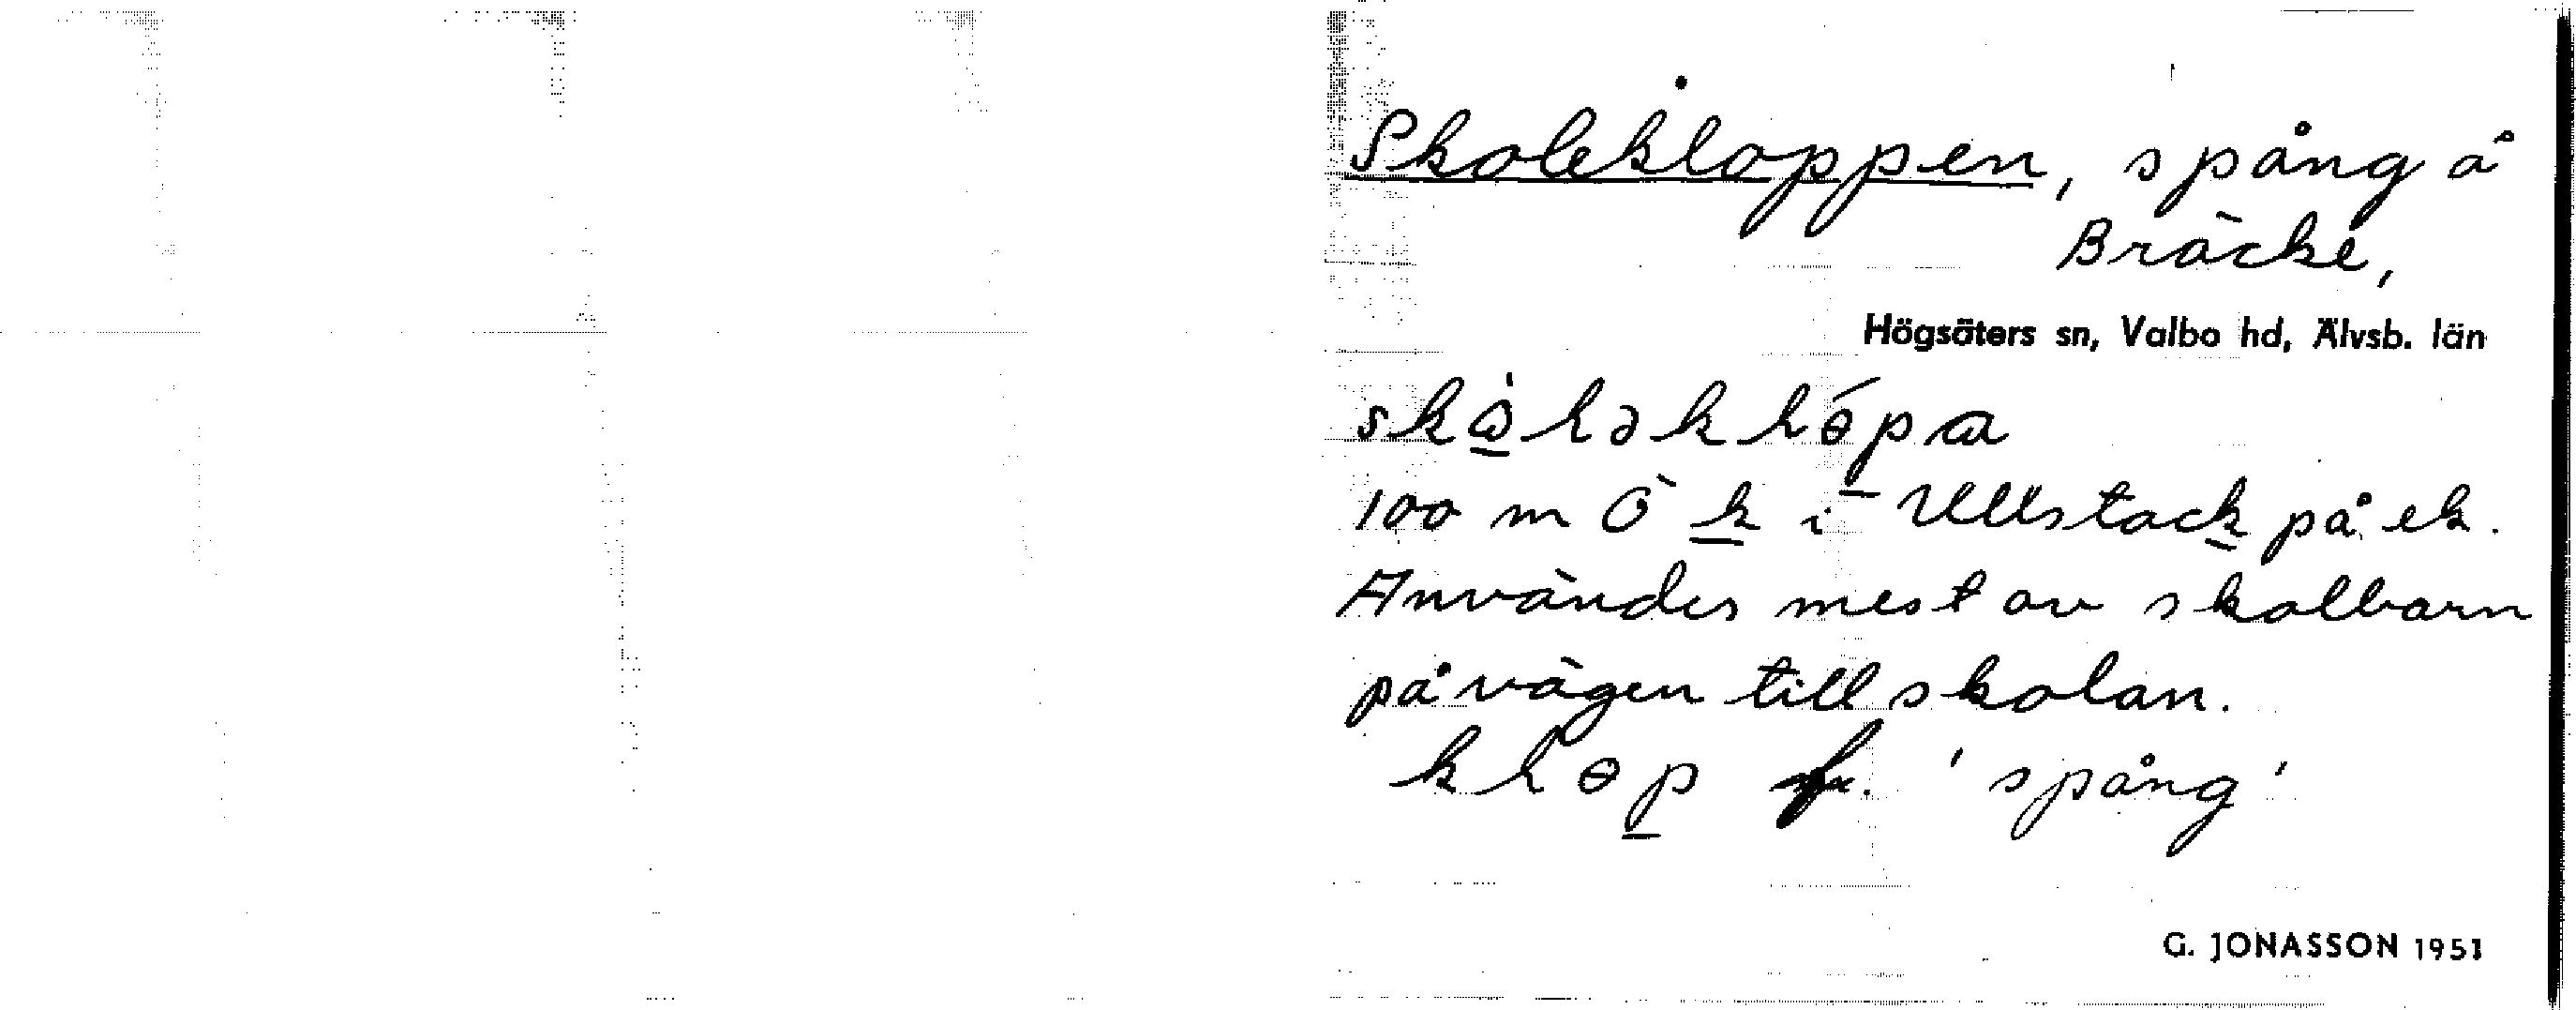 Skolekloppen, spång å
Bräcke,
Högsäters sn, Valbo hd, Älvsb. län
100 m Ö k i Ullstack på ek.
Användes mest av skolbarn
på vägen till skolan.
kləp f. 'spång'
G. JONASSON 1951